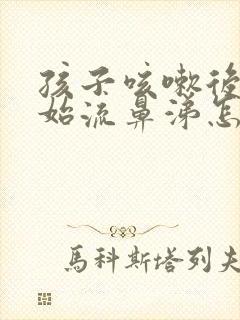 孩子咳嗽後
始流鼻涕怎
馬科斯塔列夫